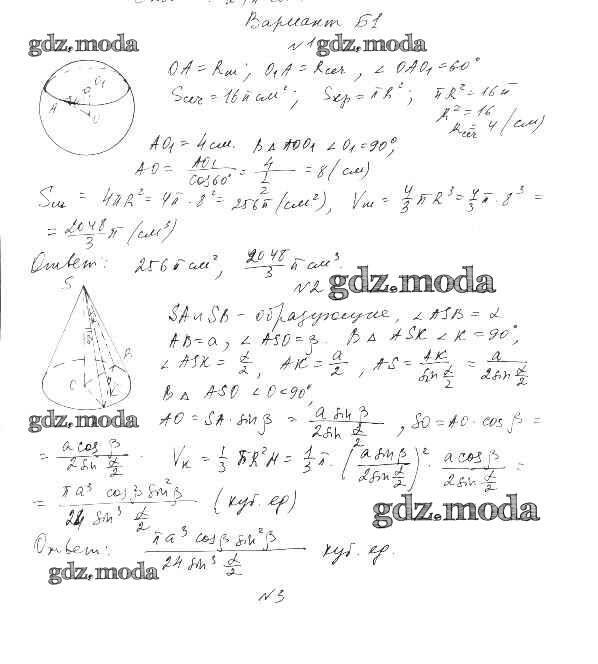 Вариант Б1
gdz.moda gdz.moda
№1
OA = Rш; O₁A = Rсеч, ∠OAO₁ = 60°
Sсеч = 16π см²; Sкр = πR²; πR² = 16π
R² = 16
Rсеч = 4 (см)
AO₁ = 4 см. В △AOO₁ ∠O₁ = 90°,
AO = AO₁/cos60° = 4/(1/2) = 8 (см)
Sш = 4πR² = 4π·8² = 256π (см²), Vш = 4/3 πR³ = 4/3 π·8³ =
= 2048/3 π (см³)
Ответ: 256π см², 2048/3 π см³.
№2 gdz.moda
SA и SB – образующие, ∠ASB = α
AB = a, ∠ASO = β. В △ ASK ∠K = 90°,
∠ASK = α/2, AK = a/2, AS = AK/sin α/2 = a/2sin α/2
В △ ASO ∠O = 90°,
gdz.moda
AO = SA·sin β = a sin β/2 sin α/2, SO = AO·cos β =
= a cos β/2 sin α/2. Vк = 1/3 πR²H = 1/3 π·(a sin β/2 sin α/2)²·a cos β/2 sin α/2 =
= πa³ cos β sin²β/24 sin³ α/2 (куб. ед)
gdz.moda
Ответ: πa³ cos β sin²β/24 sin³ α/2 куб. ед.
gdz.moda
№3